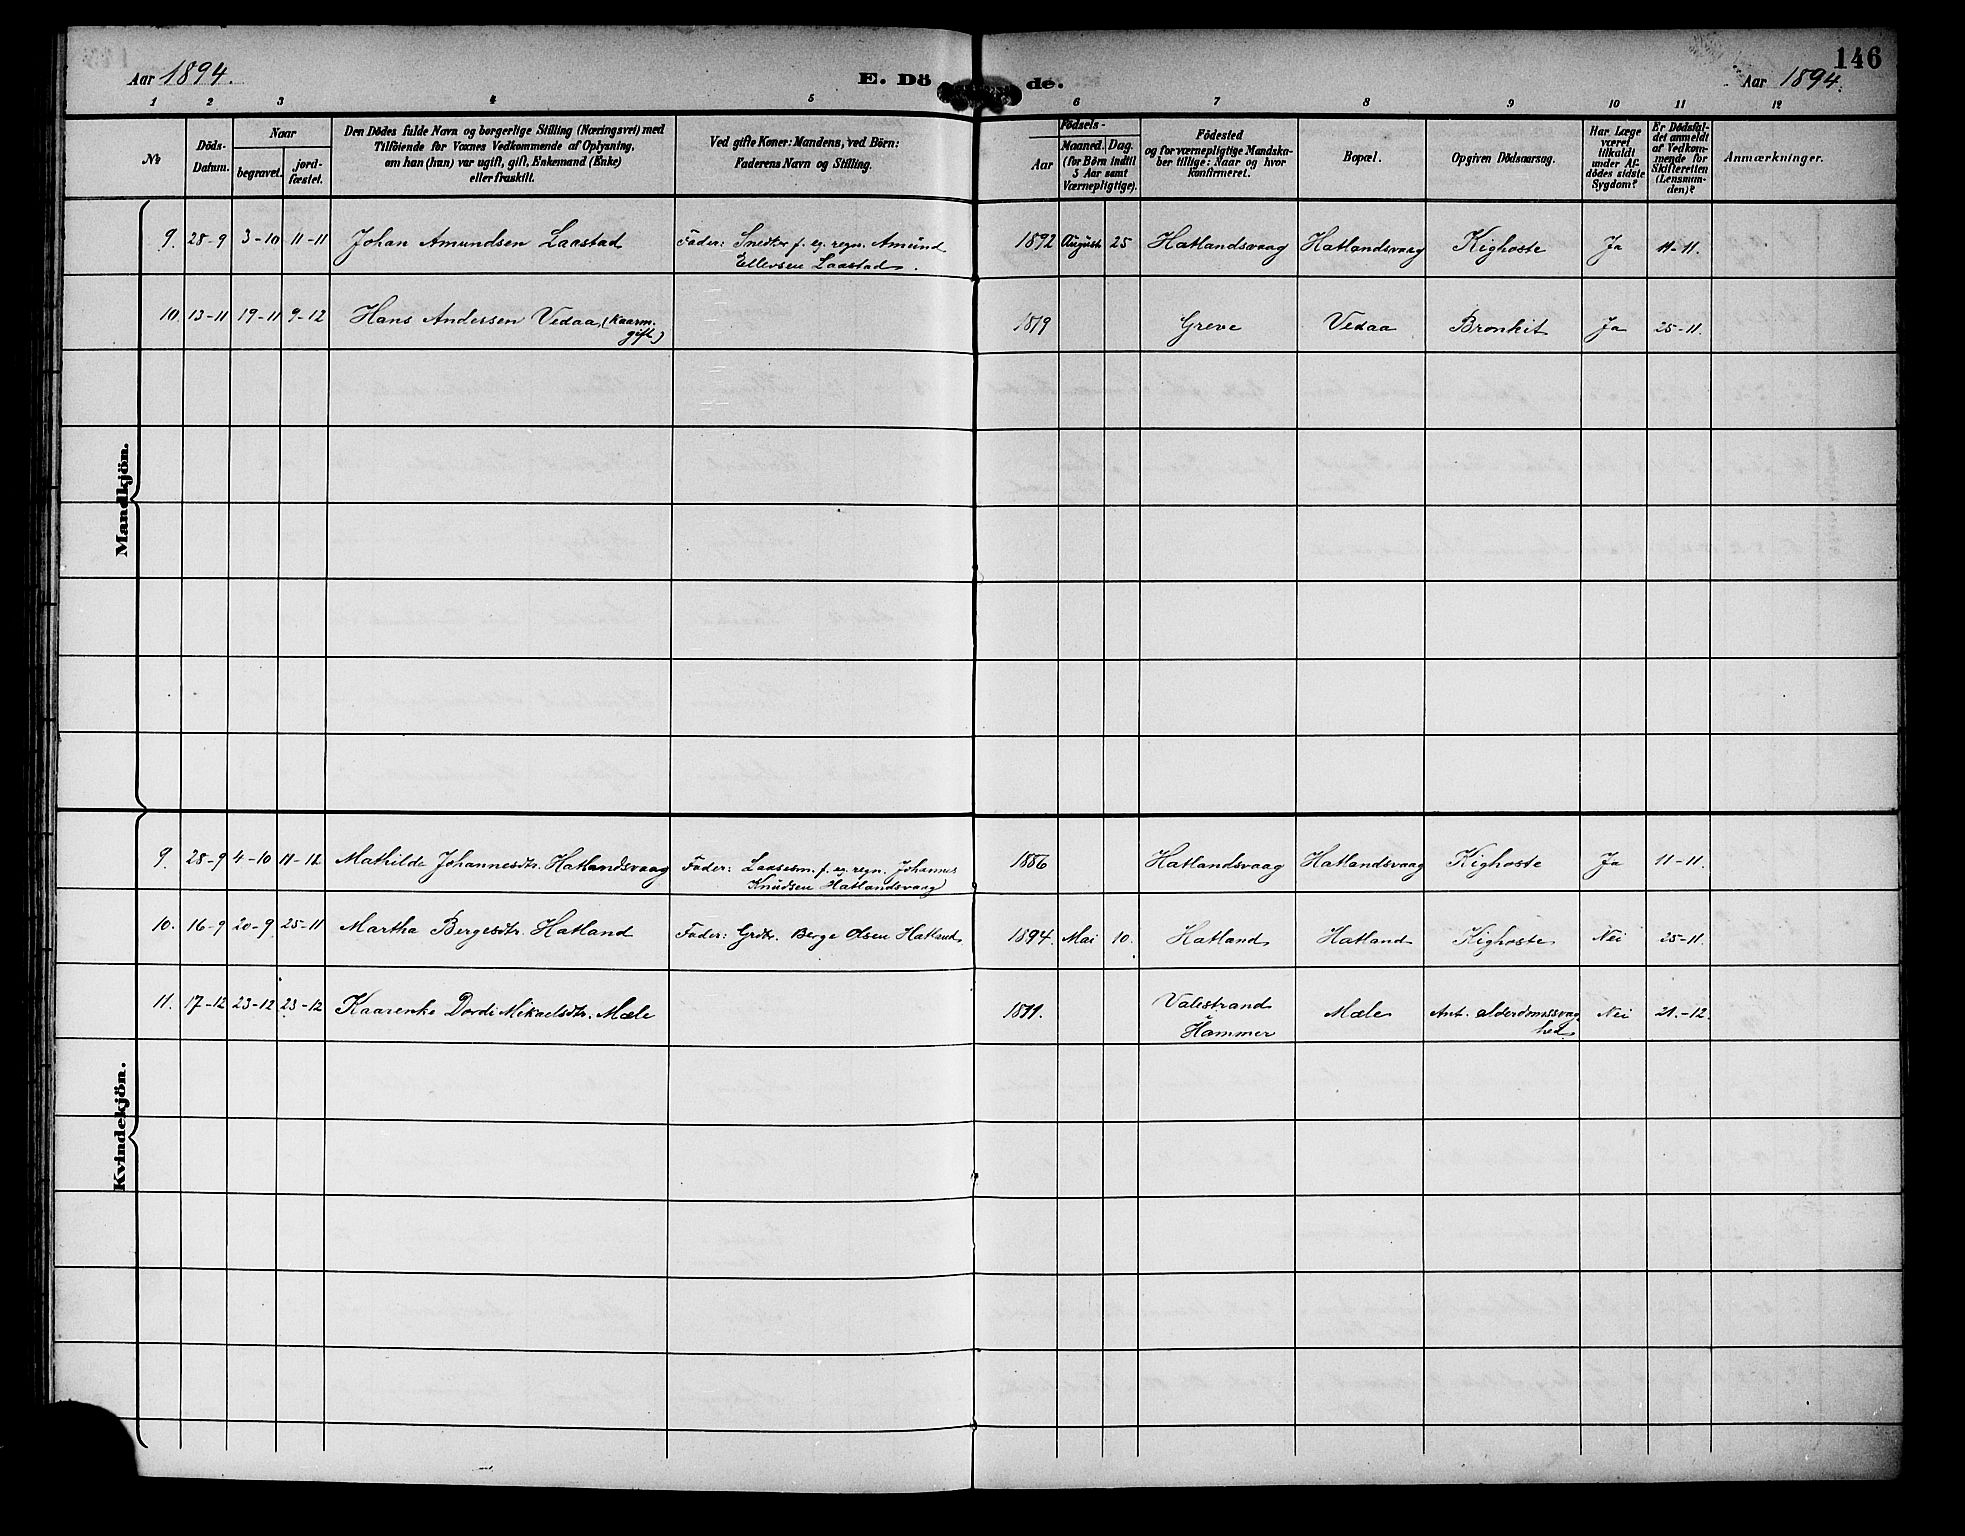 146
Aar 1894.
E. Dö de.
Aar 1894.
1 2 3 4 5 6 7 8 9 10 11 12
№
Döds-
Datum.
Naar
begravet.
jord-
fæstet.
Den Dödes fulde Navn og borgerlige Stilling (Næringsvei) med
Tilföiende for Voxnes Vedkommende af Oplysning,
om han (hun) var ugift, gift, Enkemand (Enke)
eller fraskilt.
Ved gifte Koner: Mandens, ved Börn:
Faderens Navn og Stilling.
Födsels-
Aar
Maaned. Dag.
(for Börn indtil
5 Aar samt
Værnepligtige).
Födested
og for værnepligtige Mandska-
ber tillige: Naar og hvor
konfirmeret.
Bopæl.
Opgiven Dödsaarsag.
Har Læge
været
tilkaldt
under Af-
dödes sidste
Sygdom?
Er Dödsfal-
det anmeldt
af Vedkom-
mende for
Skifteretten
(Lensman-
den)?
Anmærkninger.
Mandkjön.
9. 28-9 3-10 11-11 Johan Amundsen Laastad Fader: Snedker f. eg. regn. Amund 1892 August 25 Hatlandsvaag Hatlandsvaag Kighoste Ja 11-11.
Ellevsen Laastad.
10. 13-11 19-11 9-12 Hans Andersen Vedaa (Kaarm. 1819 Greve Vedaa Bronkit Ja 25-11.
gift)
Kvindekjön.
9. 28-9 4-10 11-12 Mathilde Johannesdtr. Hatlandsvaag Fader: Laasesm. f. eg. regn. Johannes 1886 Hatlandsvaag Hatlandsvaag Kighoste Ja 11-11.
Knudsen Hatlandsvaag
10. 16-9 20-9 25-11 Martha Bergesdtr. Hatland Fader: Grdbr. Berge Olsen Hatland 1894. Mai 10. Hatland Hatland Kighoste Nei 25-11.
11. 17-12 23-12 23-12 Kaarenke Dordi Mikaelsdtr. Mæle Valestrand Mæle Ant. alderdmssvag- Nei 21.-12.
i Hammer hed